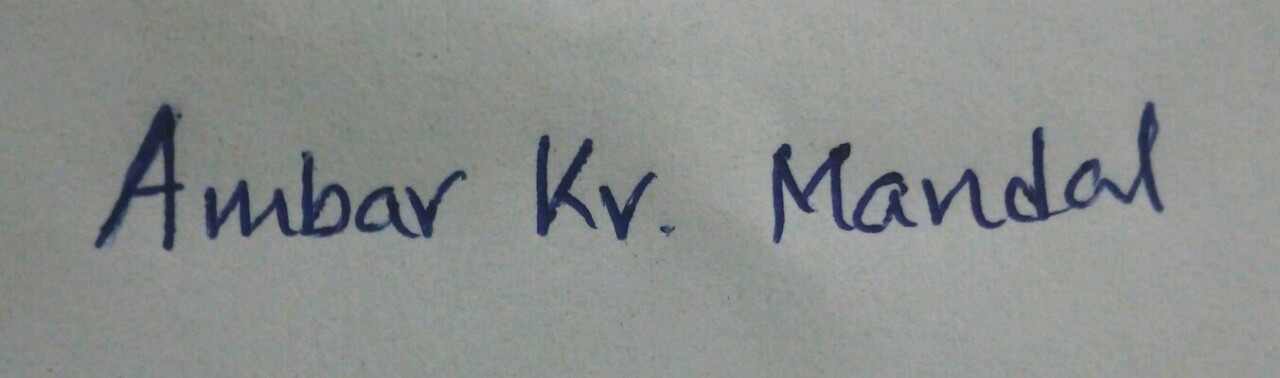 Ambar Kr. Mandal